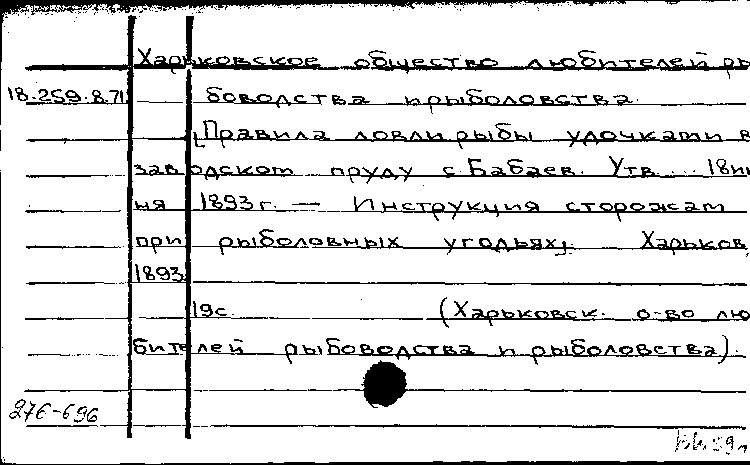 Харьковское общество любителей ры
18.259.8.71 боводства и рыболовства.
[Правила ловли рыбы удочками в
заводском пруду с. Бабаев. Утв. 18 ию
ня 1893 г. — Инструкция сторожам
при рыболовных угодьях]. Харьков,
1893.
19 с. (Харьковск. о-во лю
бителей рыбоводства и рыболовства).
276-696